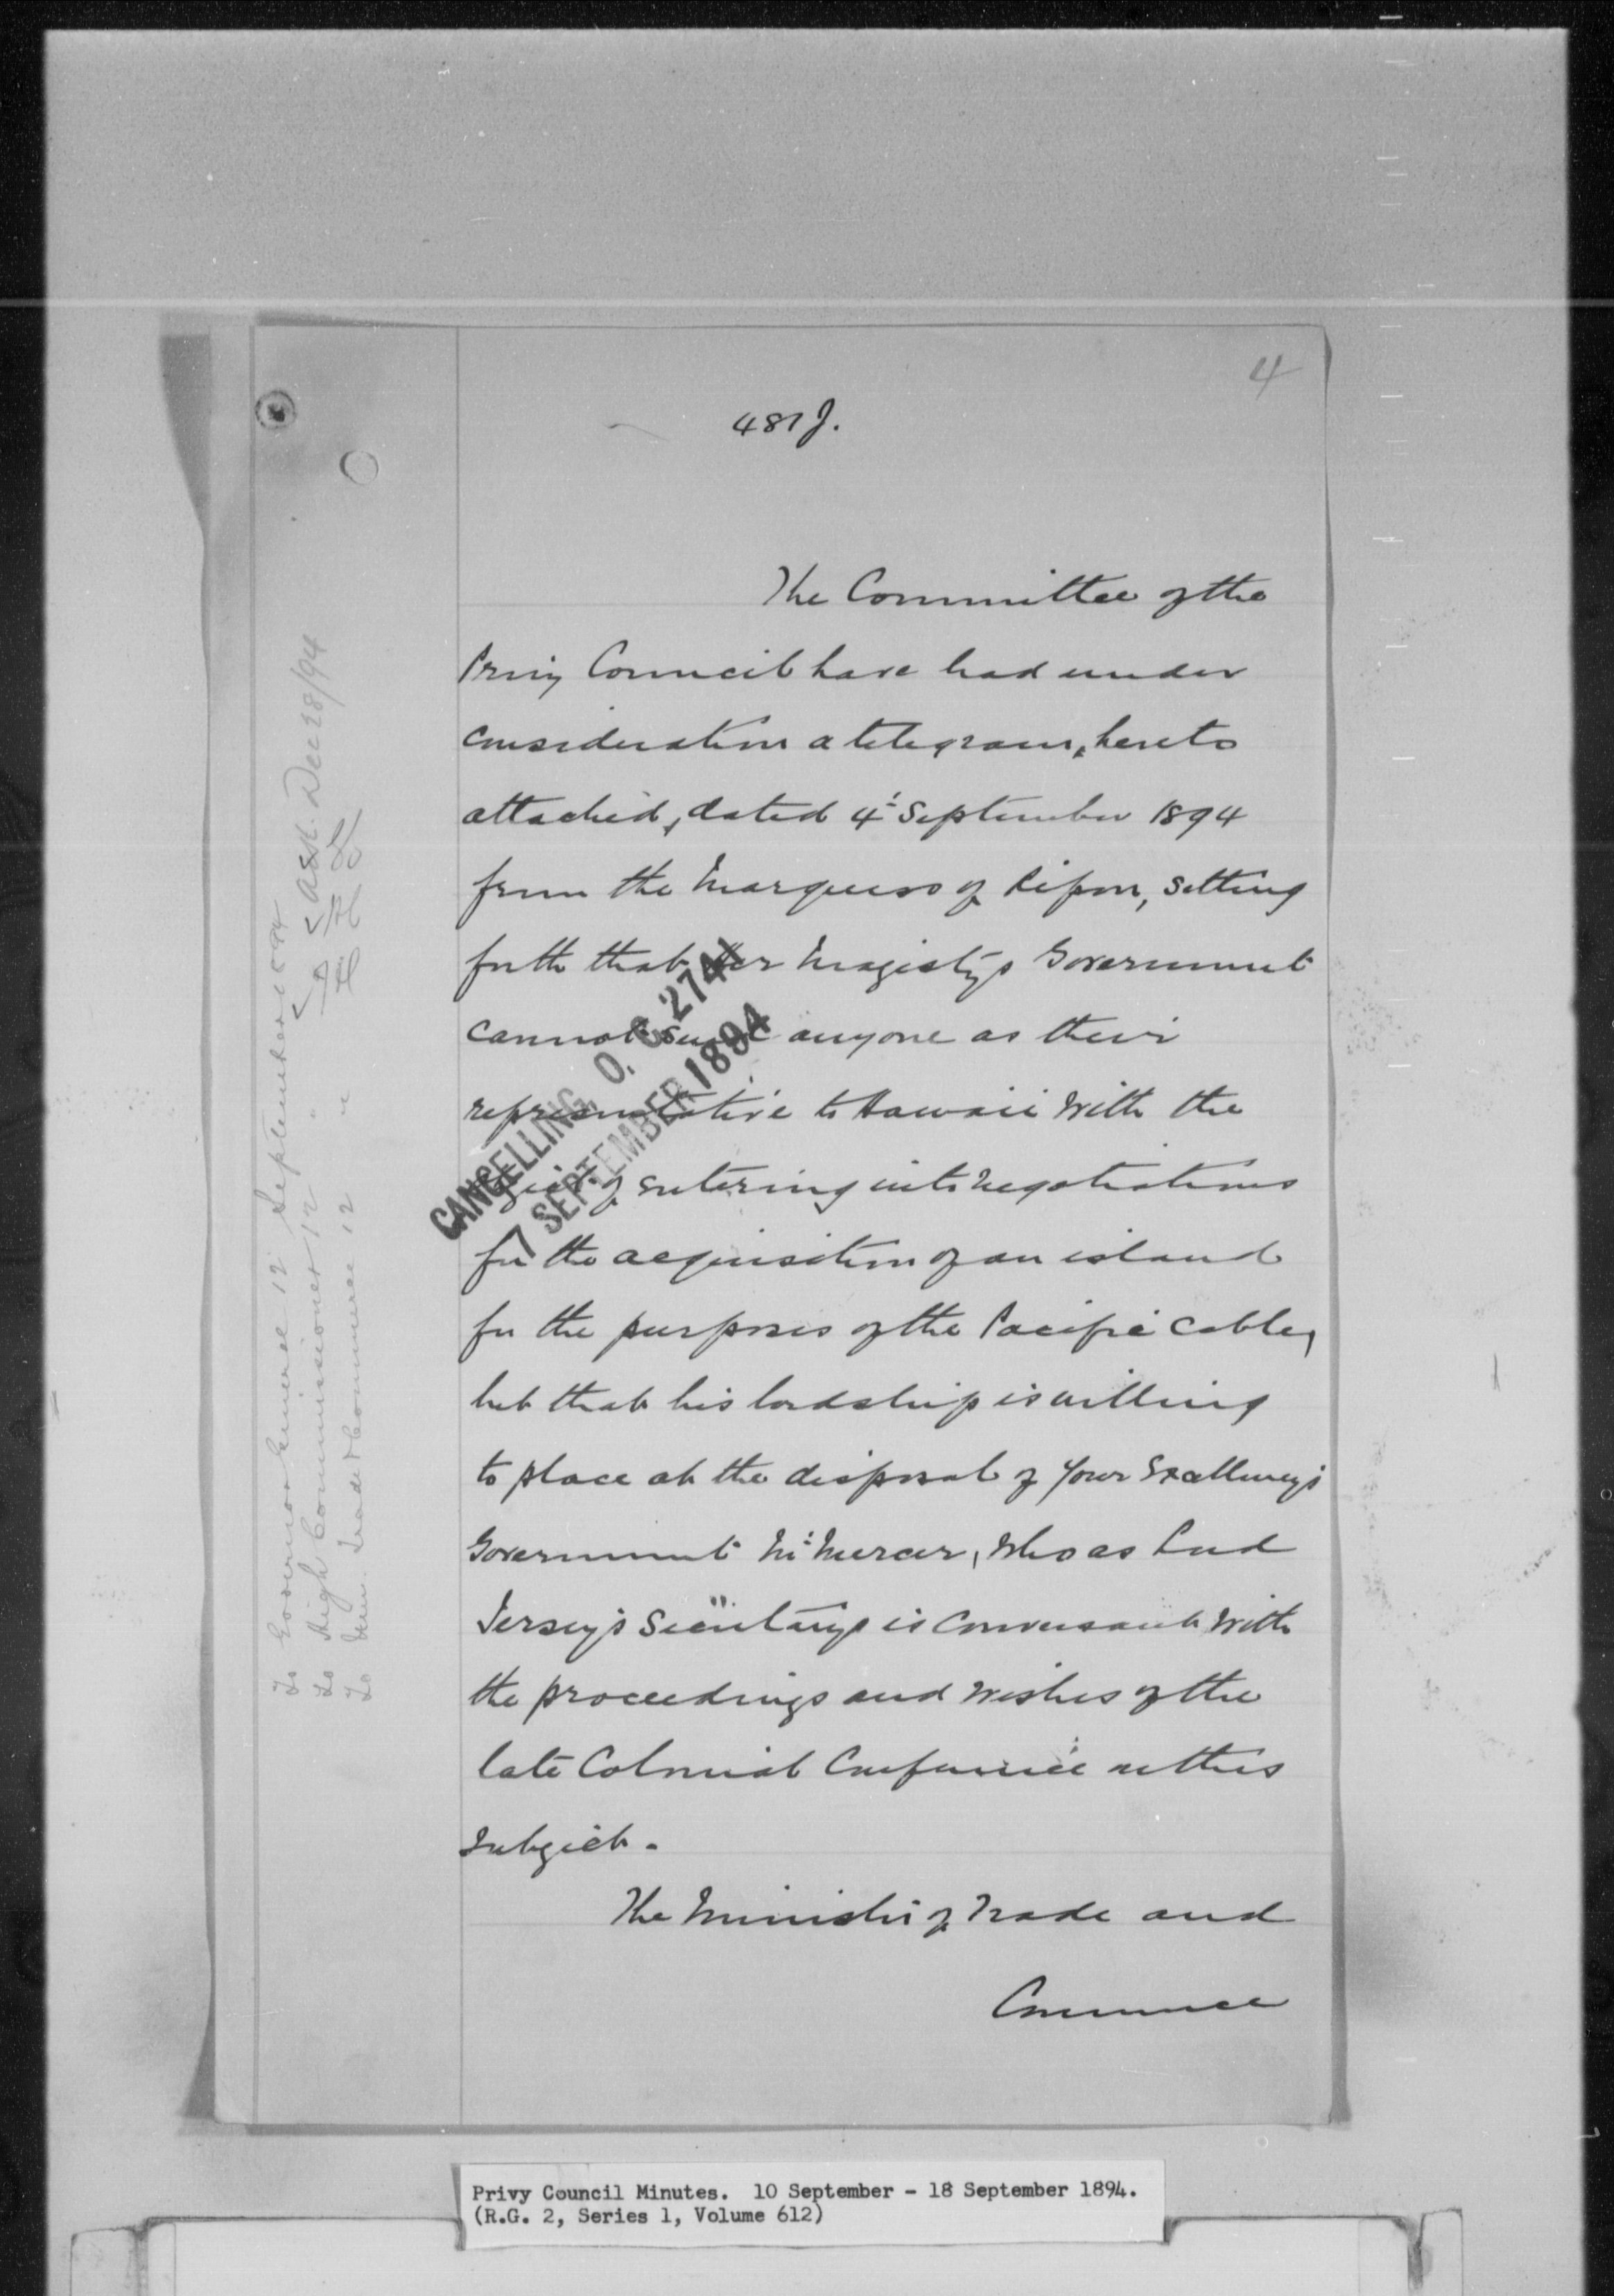 4
481 J.
The Committee of the
Privy Council have had under
consideration a telegram, hereto
attached, dated 4th September 1894
from the Marquess of Ripon, setting
forth that Her Majesty's Government
cannot send anyone as their
representative to Hawaii with the
object of entering into negotiations
for the acquisition of an island
for the purposes of the Pacific Cable,
but that his lordship is willing
to place at the disposal of Your Excellency's
Government Mr Mercer, who as Lord
Jersey's Secretary is conversant with
the proceedings and wishes of the
late Colonial Conference on this
subject.
The Minister of Trade and
Commerce
CANCELLING O. C. 2741
7 SEPTEMBER 1894
To Governor General 12 September 1894
To High Commissioner 12 " "
To Min. Trade & Commerce 12 "
Dec 28/94
Privy Council Minutes. 10 September - 18 September 1894.
(R.G. 2, Series 1, Volume 612)